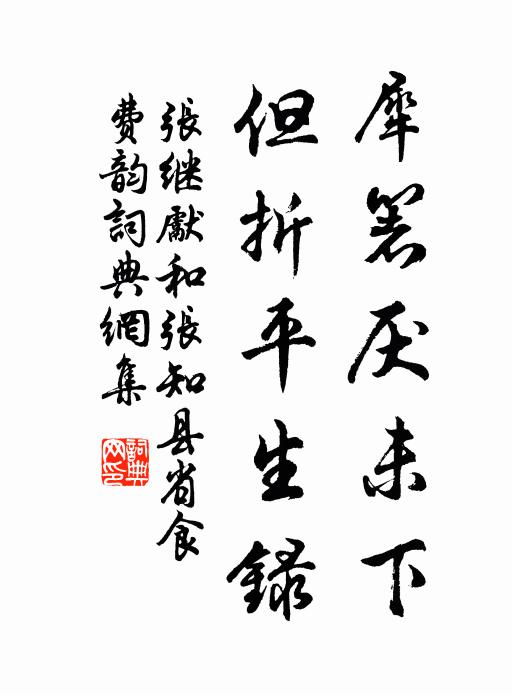 犀箸厌未下
但折平生録
張继獻和張知县省食
費韵詞典網集
詞典网印